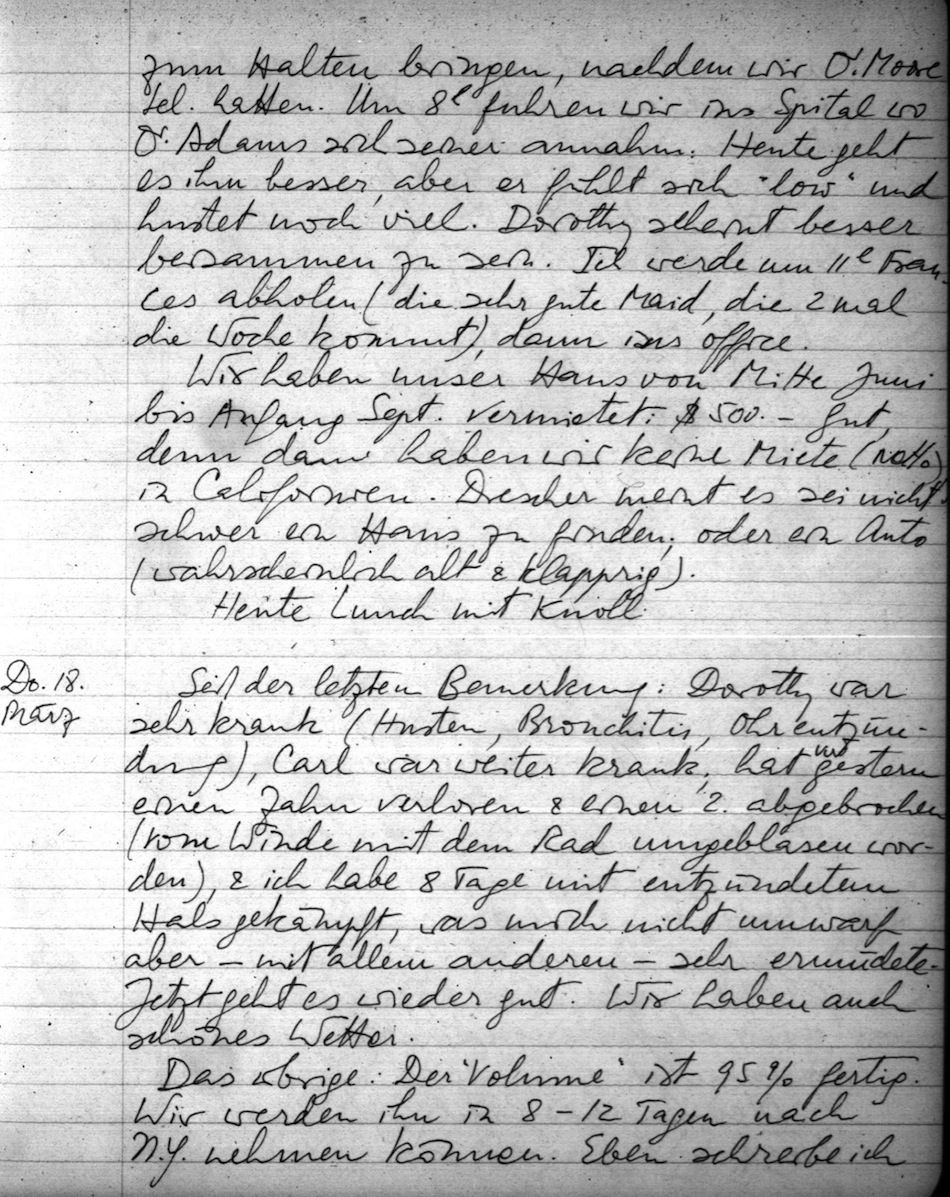 zum Halten bringen, nachdem wir Dr. Moore
tel. hatten. Um 8h fuhren wir ins Spital wo
Dr. Adams sich seiner annahm. Heute geht
es ihm besser, aber er fühlt sich "low" und
hustet noch viel. Dorothy scheint besser
beisammen zu sein. Ich werde um 11h Fran-
ces abholen (die sehr gute Maid, die 2 mal
die Woche kommt), dann ins office.
Wir haben unser Haus von Mitte Juni
bis Anfang Sept. vermietet: $500.- Gut,
denn dann haben wir keine Miete (netto)
in Californien. Drescher meint es sei nicht
schwer ein Haus zu finden, oder ein Auto
(wahrscheinlich alt & klapprig).
Heute Lunch mit Knoll.
Do. 18.
März
Seit der letzten Bemerkung: Dorothy war
sehr krank (Husten, Bronchitis, Ohrentzün-
dung), Carl war weiter krank, hat gestern
einen Zahn verloren & einen 2. abgebrochen
(vom Winde mit dem Rad umgeblasen wor-
den), & ich habe 8 Tage mit entzündetem
Hals gekämpft, was mich nicht umwarf
aber – mit allem anderen – sehr ermüdete.
Jetzt geht es wieder gut. Wir haben auch
schönes Wetter.
Das übrige: Der 'Volume' ist 95% fertig.
Wir werden ihn in 8-12 Tagen nach
N.Y. nehmen können. Eben schreibe ich